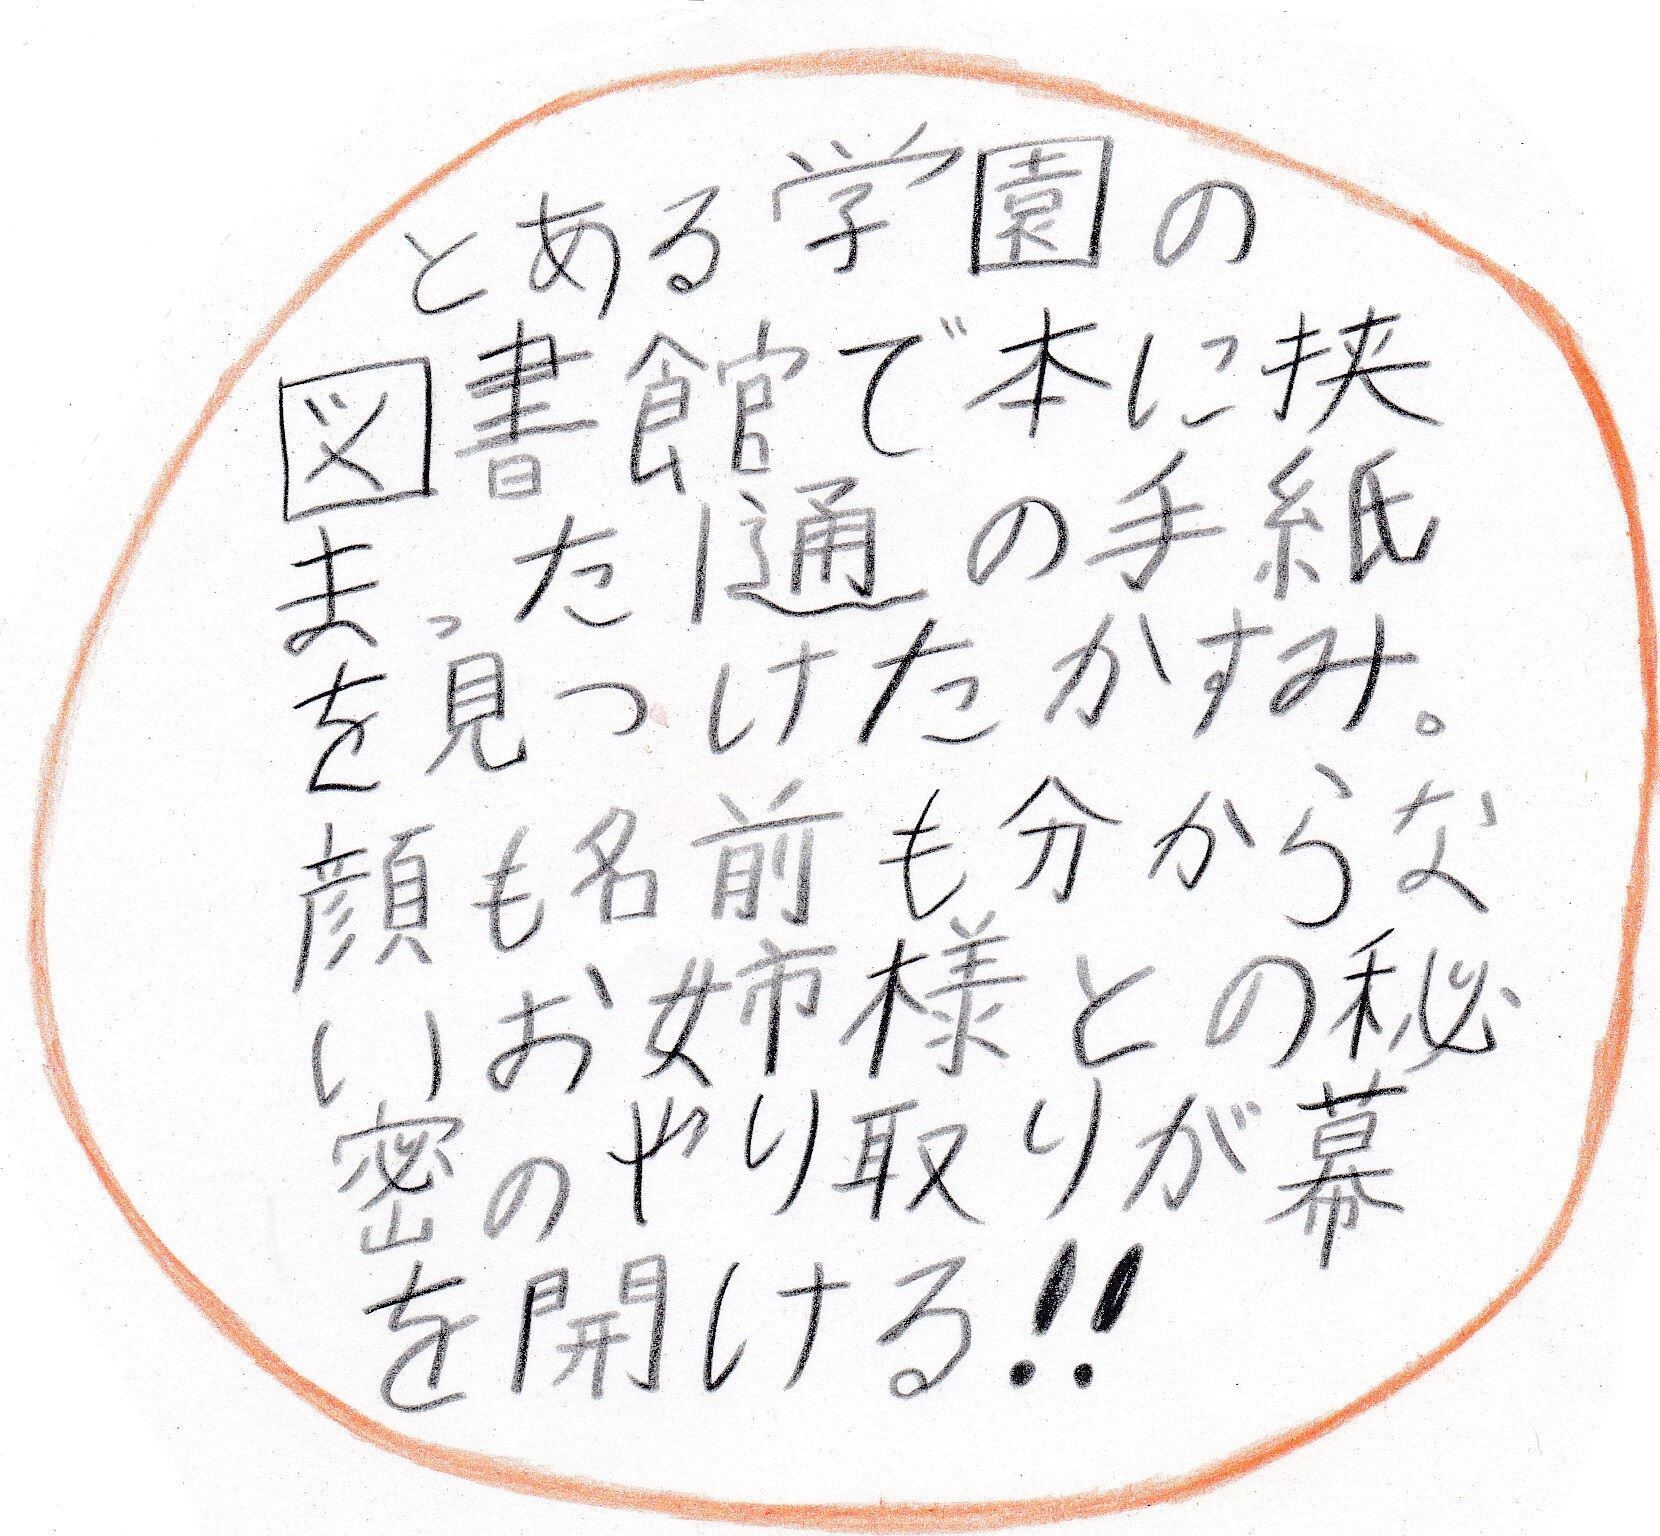 とある学園の
図書館で本に挟
まった1通の手紙
を見つけたかすみ。
顔も名前も分からな
いお姉様との秘
密のやり取りが幕
を開ける!!